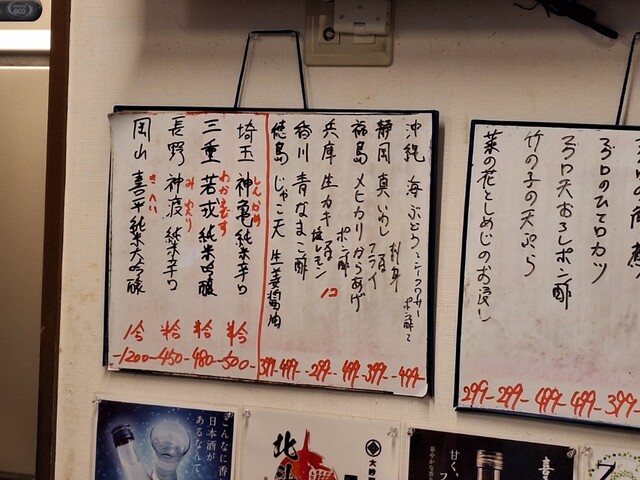 沖縄 海ぶどう シークワサーポン酢で 499-
静岡 真いわし フライ 399-
福島 メヒカリからあげ 499-
兵庫 生カキ ポン酢 塩レモン 1コ 299-
香川 青なまこ酢 499-
徳島 じゃこ天 生姜醤油 399-
埼玉 神亀 純米辛口 半合 500-
しんかめ
三重 若戎 純米吟醸 半合 480-
わかえびす
長野 神渡 純米辛口 半合 450-
みわたり
岡山 喜平 純米大吟醸 1合 1200-
きへい
399-
マグロのひてロカツ 499-
マグロ天おろしポン酢 499-
竹の子の天ぷら 299-
菜の花としめじのお浸し 299-
こんなに香
日本酒が
あるなんて、
北斗
大吟
甘く、
喜